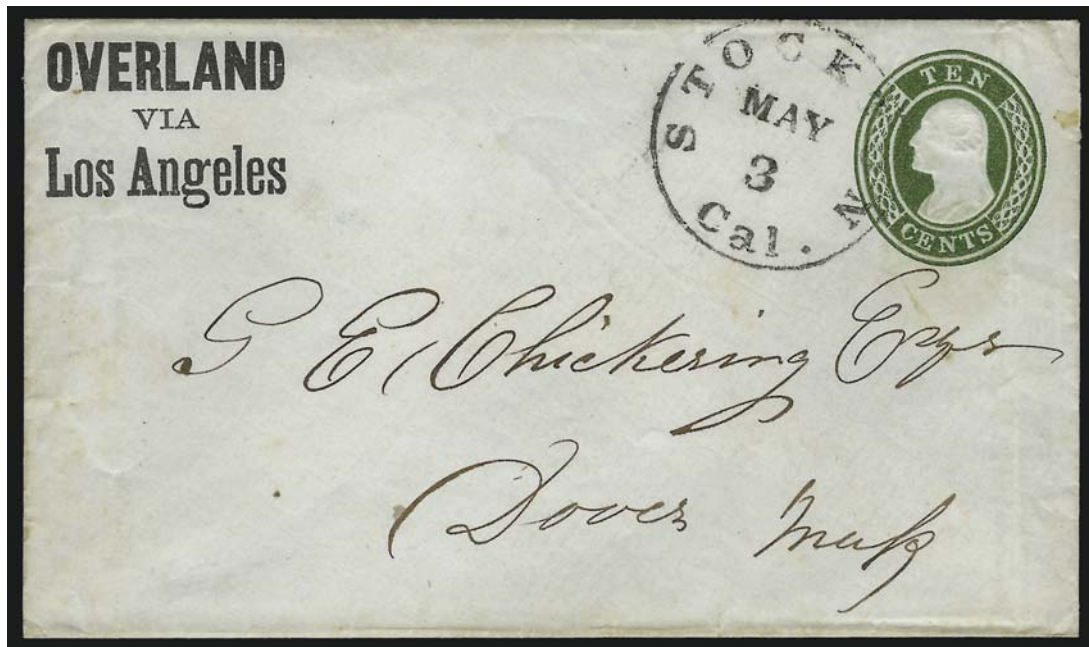 OVERLAND
VIA
Los Angeles
STOCK N
MAY
3
Cal.
TEN
CENTS
G E Chickering Esqr
Dover Mass